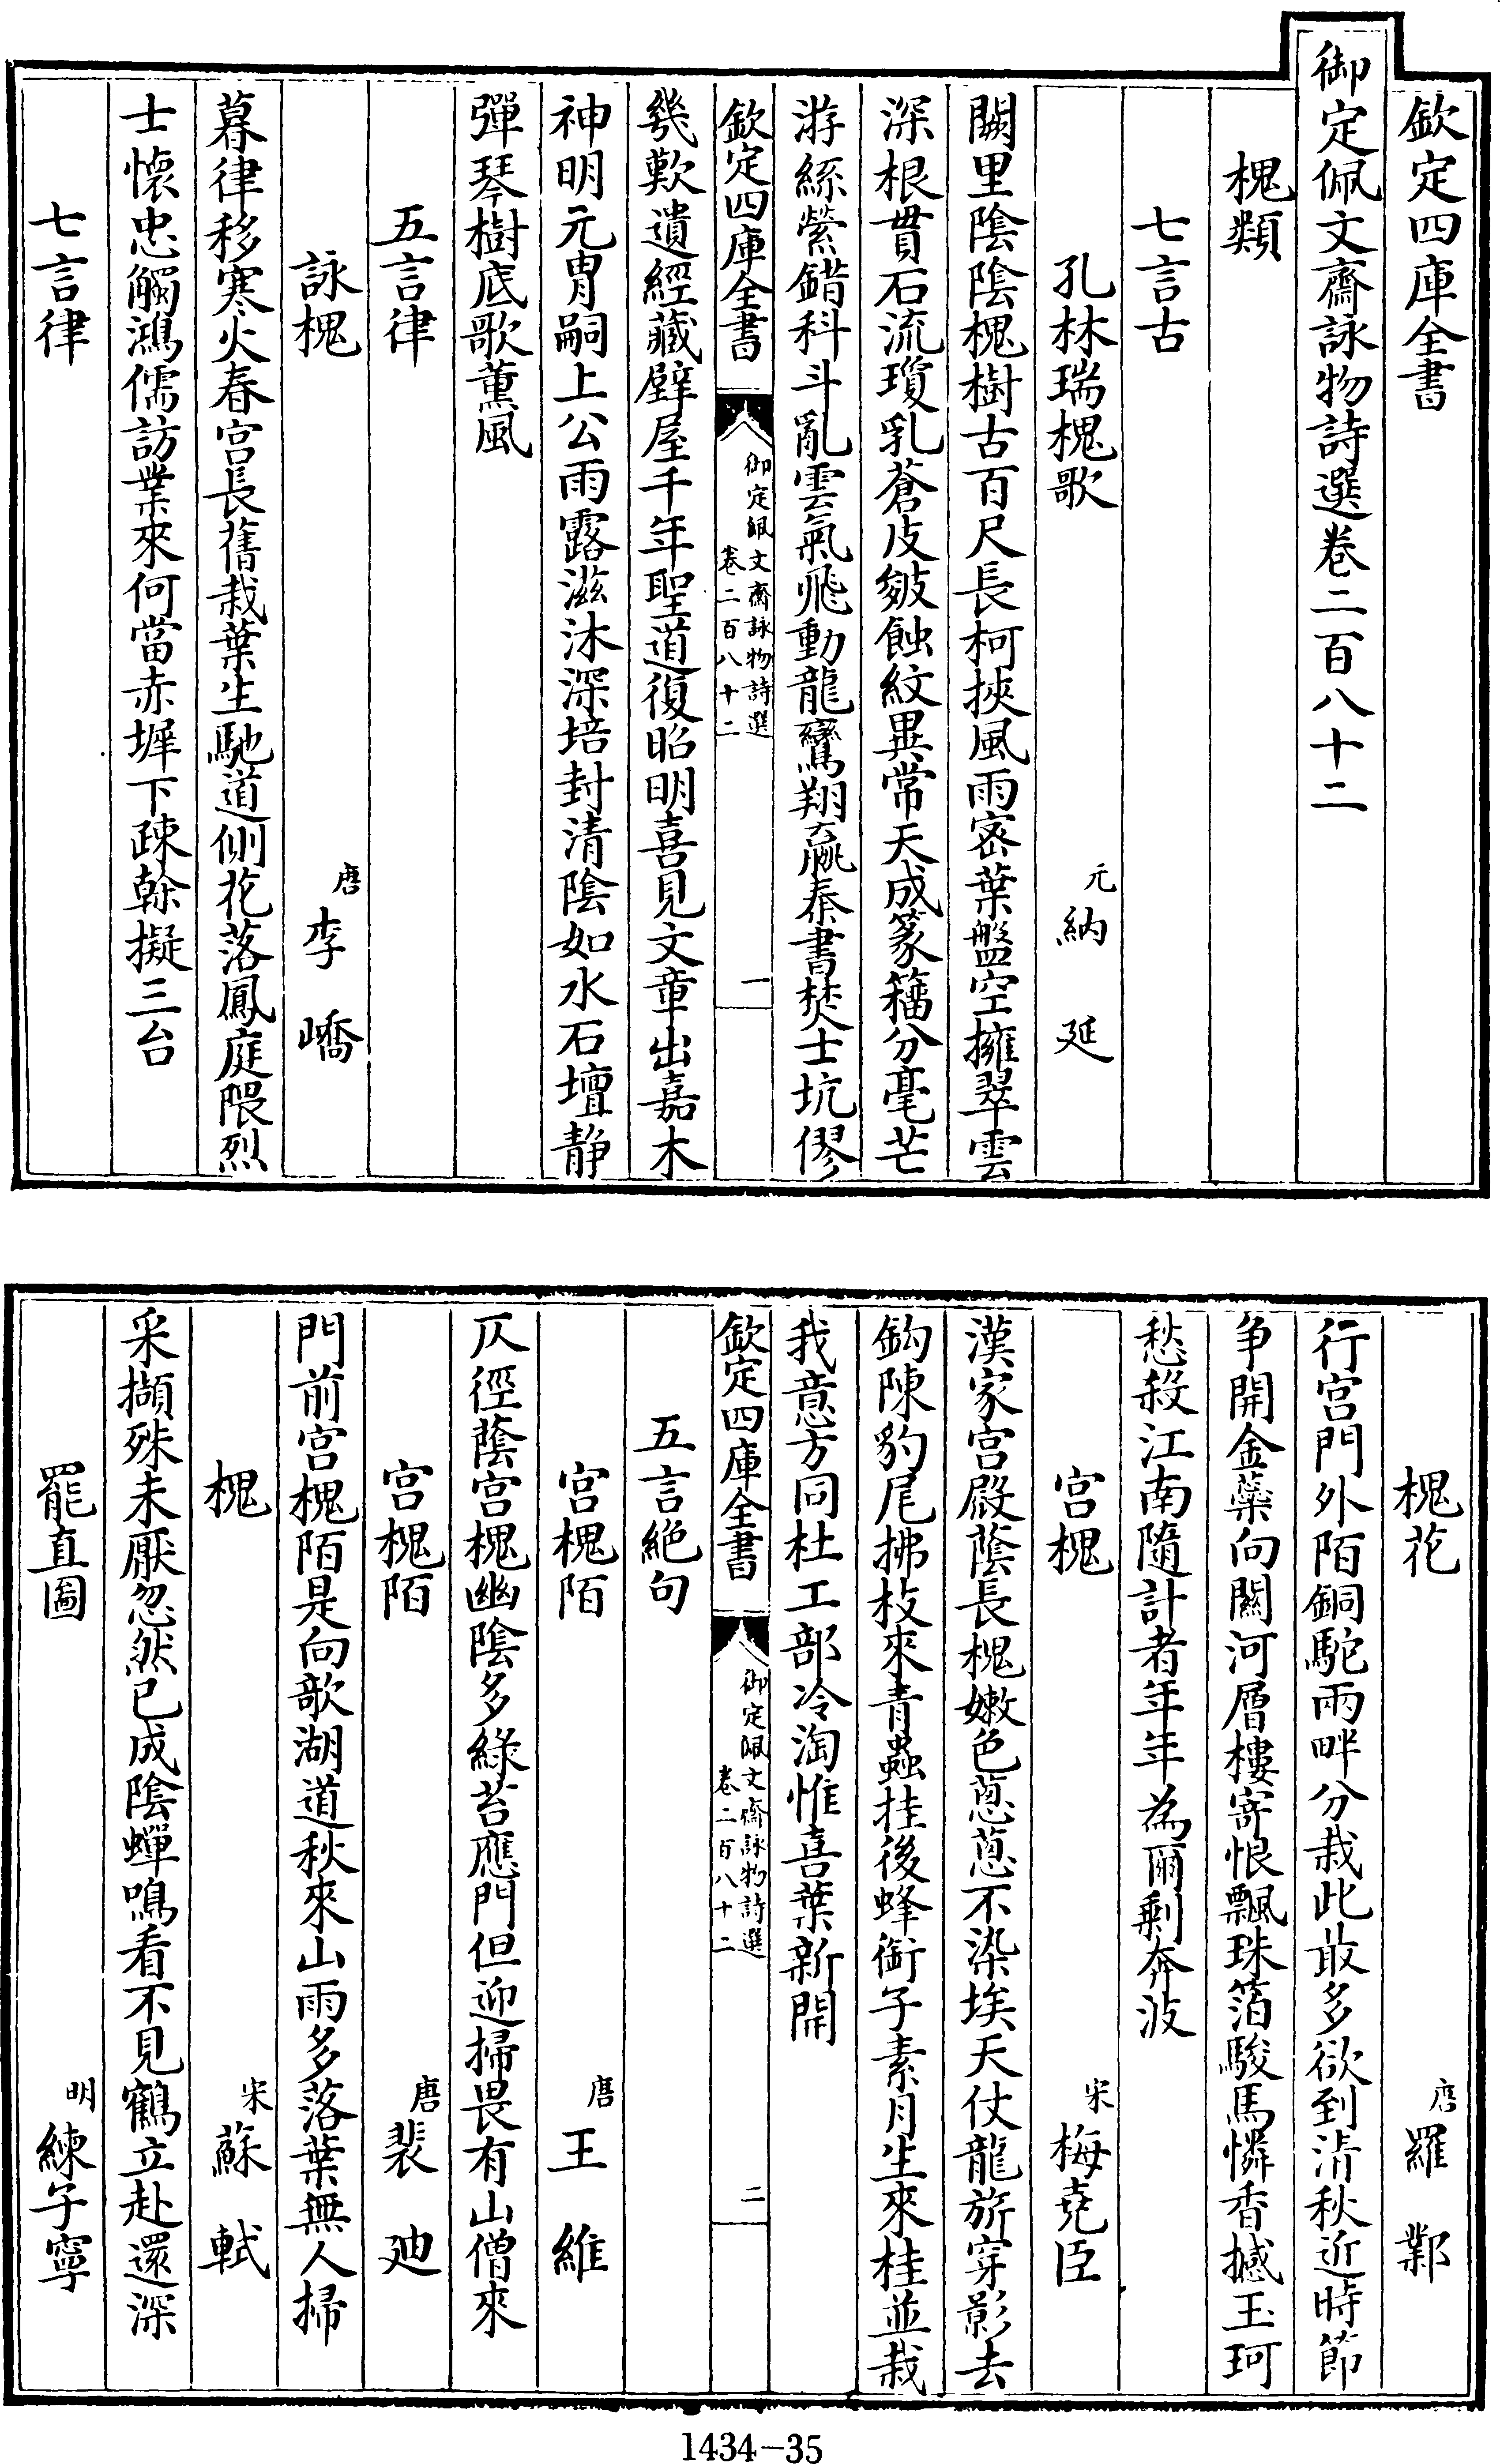 欽定四庫全書
御定佩文齋詠物詩選卷二百八十二
槐類
七言古
孔林瑞槐歌 元 納延
闕里陰陰槐樹古百尺長柯挾風雨宻葉盤空擁翠雲
深根貫石流瓊乳蒼皮皴蝕紋異常天成篆籀分毫芒
游絲縈錯科斗亂雲氣飛動龍鸞翔嬴秦書焚士坑僇
欽定四庫全書
御定佩文齋詠物詩選
卷二百八十二
一
幾歎遺經藏壁屋千年聖道復昭明喜見文章出嘉木
神明元胄嗣上公雨露滋沐深培封清陰如水石壇靜
彈琴樹底歌薰風
五言律
詠槐 唐 李嶠
暮律移寒火春宫長舊栽葉生馳道側花落鳳庭隈烈
士懷忠觸鴻儒訪業來何當赤墀下疎榦擬三台
七言律
槐花 唐 羅鄴
行宫門外陌銅駝兩畔分栽此㪚多欲到清秋近時節
争開金蘂向關河層樓寄恨飄珠箔駿馬憐香撼玉珂
愁殺江南隨計者年年為爾剩奔波
宫槐 宋 梅堯臣
漢家宫殿蔭長槐嫩色葱葱不染埃天仗龍旂穿影去
鈎陳豹尾拂枝來青蟲挂後蜂銜子素月生來桂並栽
我意方同杜工部冷淘惟喜葉新開
欽定四庫全書
御定佩文齋詠物詩選
卷二百八十二
二
五言絕句
宫槐陌 唐 王維
仄徑蔭宫槐幽陰多綠苔應門但迎掃畏有山僧來
宫槐陌 唐 裴廸
門前宫槐陌是向欹湖道秋來山雨多落葉無人掃
槐 宋 蘇軾
采擷殊未厭忽然已成陰蟬鳴看不見鶴立赴還深
罷直圖 明 練子寧
1434-35